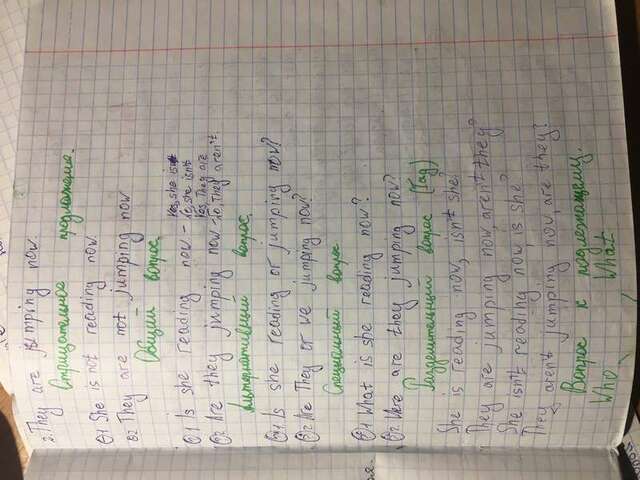 2. They are jumping now.
Отрицательное предложение.
1 She is not reading now.
2 They are not jumping now
Общий вопрос.
1 Is she reading now - Yes, she is
No, she isn't
2 Are they jumping now - Yes They are
No, They aren't
Альтернативный вопрос
1 Is she reading or jumping now?
2 Are They or we jumping now?
Специальный вопрос
1 What is she reading now?
2 Where are they jumping now?
Разделительный вопрос (Tag)
She is reading now, isn't she.
They are jumping now, aren't they?
She isn't reading now is she.
They aren't jumping now, are they?
Вопрос к подлежащему.
Who What